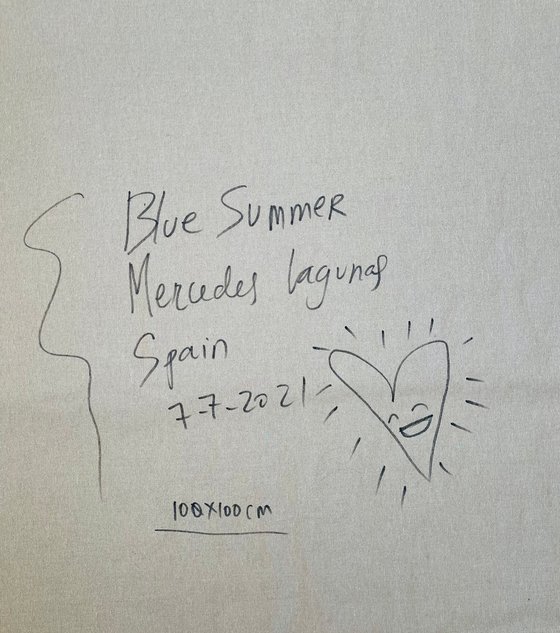 Blue Summer
Mercedes lagunas
Spain
7-7-2021
100x100cm